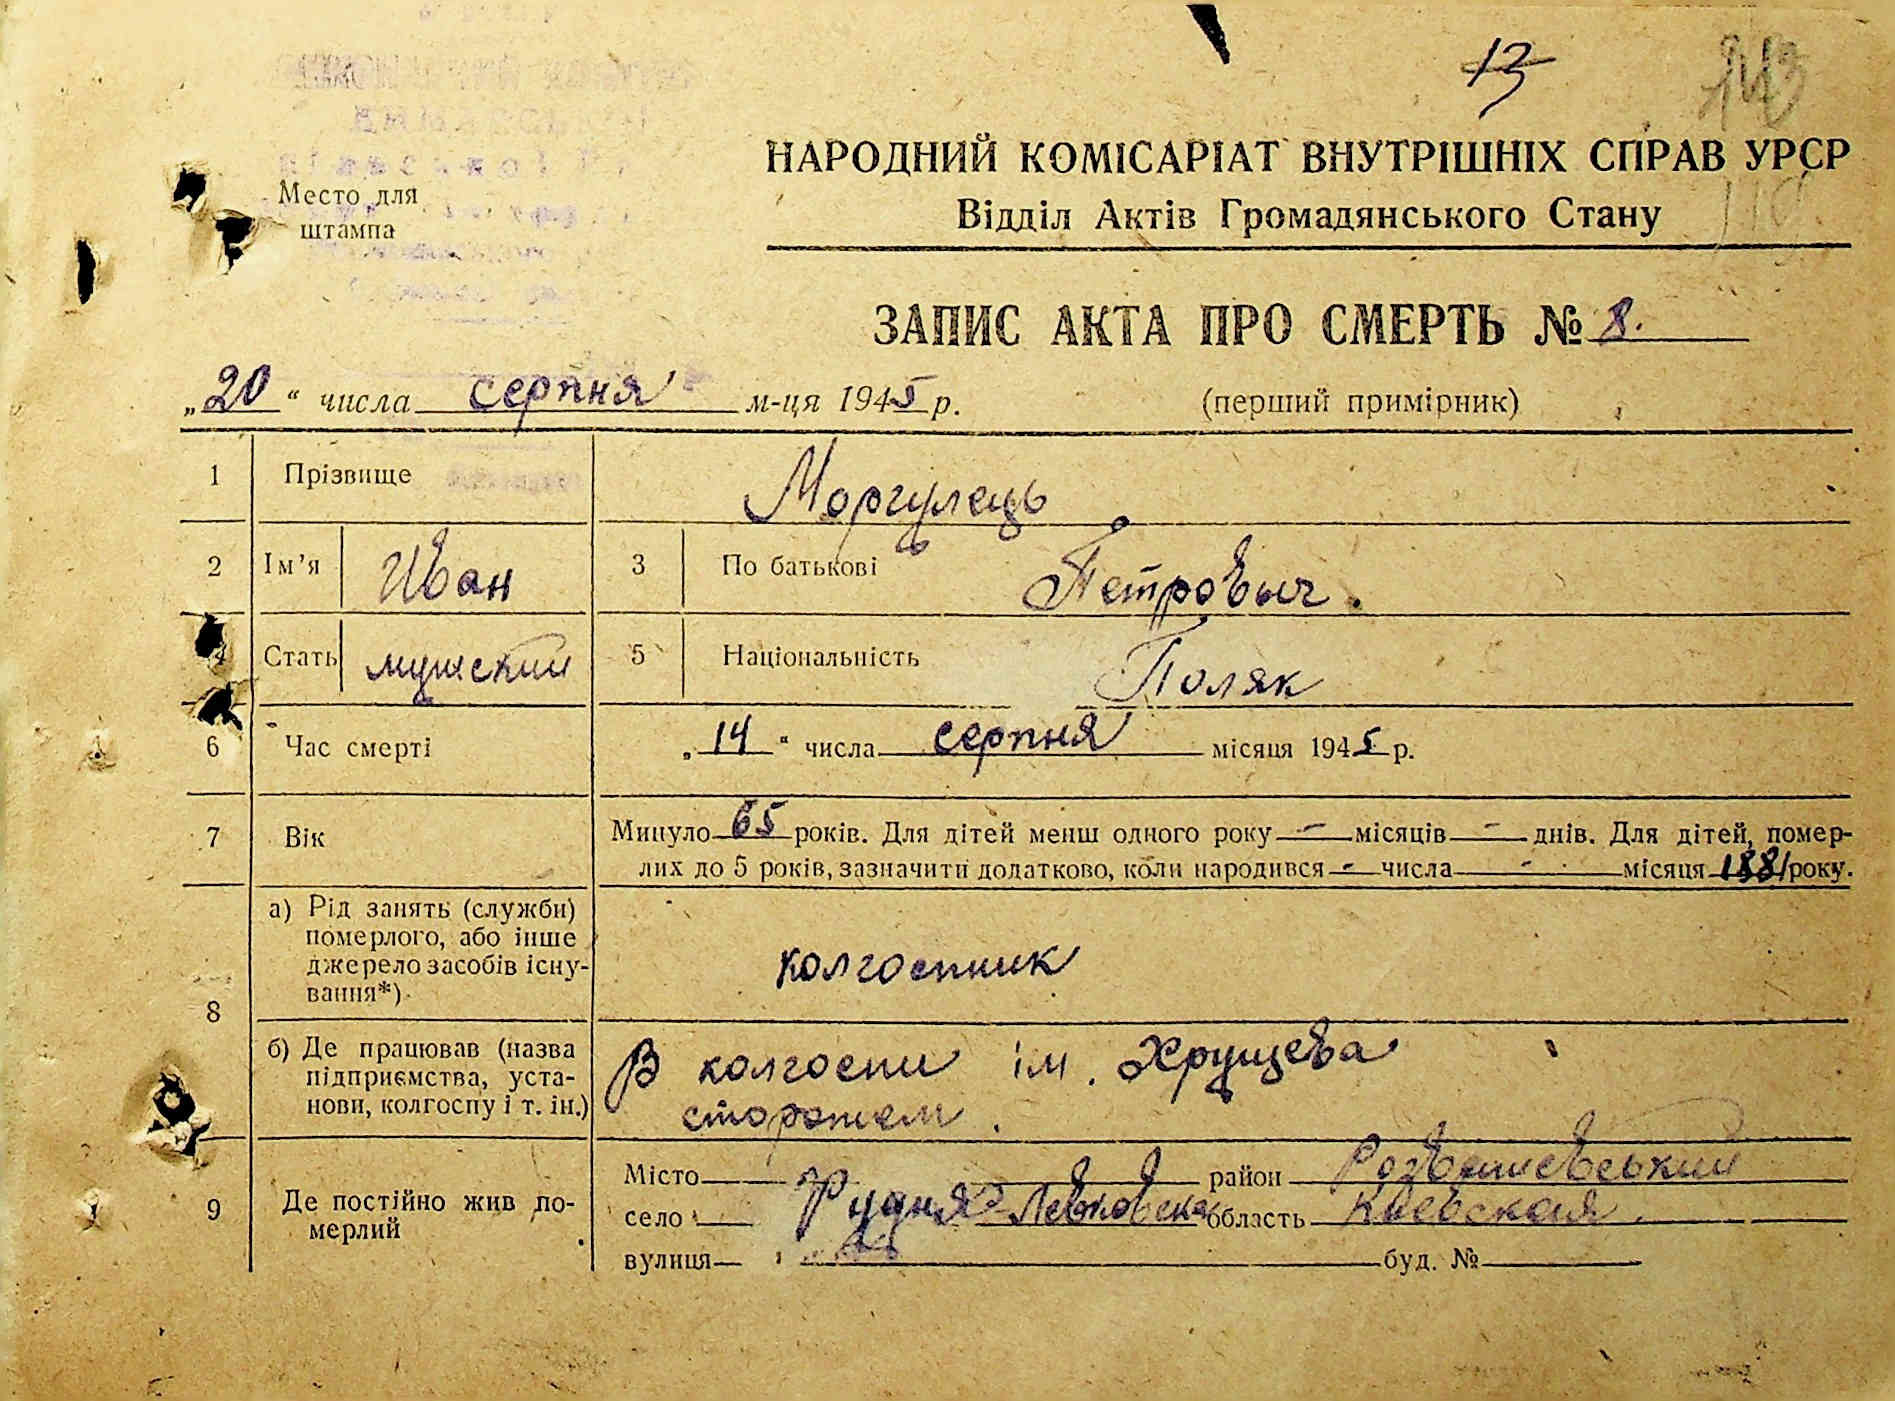 13
143
Место для
штампа
НАРОДНИЙ КОМІСАРІАТ ВНУТРІШНІХ СПРАВ УРСР
Відділ Актів Громадянського Стану
119
ЗАПИС АКТА ПРО СМЕРТЬ № 8.
„20“ числа серпня м-ця 1945 р. (перший примірник)
1 Прізвище Моргулець
2 Ім’я Иван 3 По батькові Петровыч.
4 Стать мужский 5 Національність Поляк
6 Час смерті „14“ числа серпня місяця 1945 р.
7 Вік Минуло 65 років. Для дітей менш одного року - місяців - днів. Для дітей, помер-
лих до 5 років, зазначити додатково, коли народився - числа - місяця 1881 року.
8 а) Рід занять (служби)
померлого, або інше
джерело засобів існу-
вання*)
колгоспник
б) Де працював (назва
підприємства, уста-
нови, колгоспу і т. ін.)
В колгоспи ім. Хрущева
сторожем.
9 Де постійно жив по-
мерлий
Місто район Розважевський
село Рудня-Левковска область Киевская.
вулиця буд. №